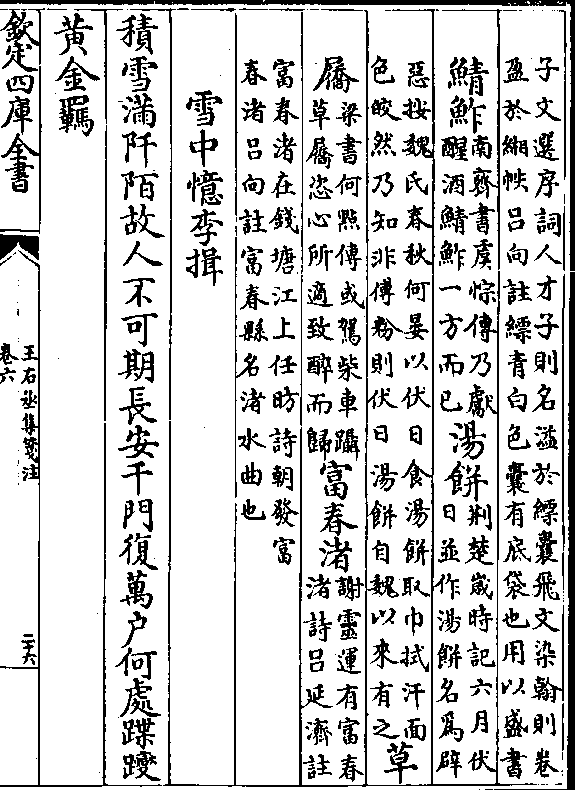 子文選序詞人才子則名溢於縹囊飛文染翰則卷
盈於緗帙呂向註縹青白色囊有底袋也用以盛書
鯖鮓南齊書虞悰傳乃獻醒酒鯖鮓一方而已湯餅荆楚嵗時記六月伏日並作湯餅名爲辟
惡按魏氏春秋何晏以伏日食湯餅取巾拭汗面色皎然乃知非傅粉則伏日湯餅自魏以來有之草
屩梁書何㸃傳或駕柴車躡草屩恣心所適致醉而歸富春渚謝靈運有富春渚詩呂延濟註
富春渚在錢塘江上任昉詩朝發富
春渚呂向註富春縣名渚水曲也
雪中憶李揖
積雪滿阡陌故人不可期長安千門復萬户何處蹀躞
黄金羈
欽定四庫全書
王右丞集箋注
卷六
二十六